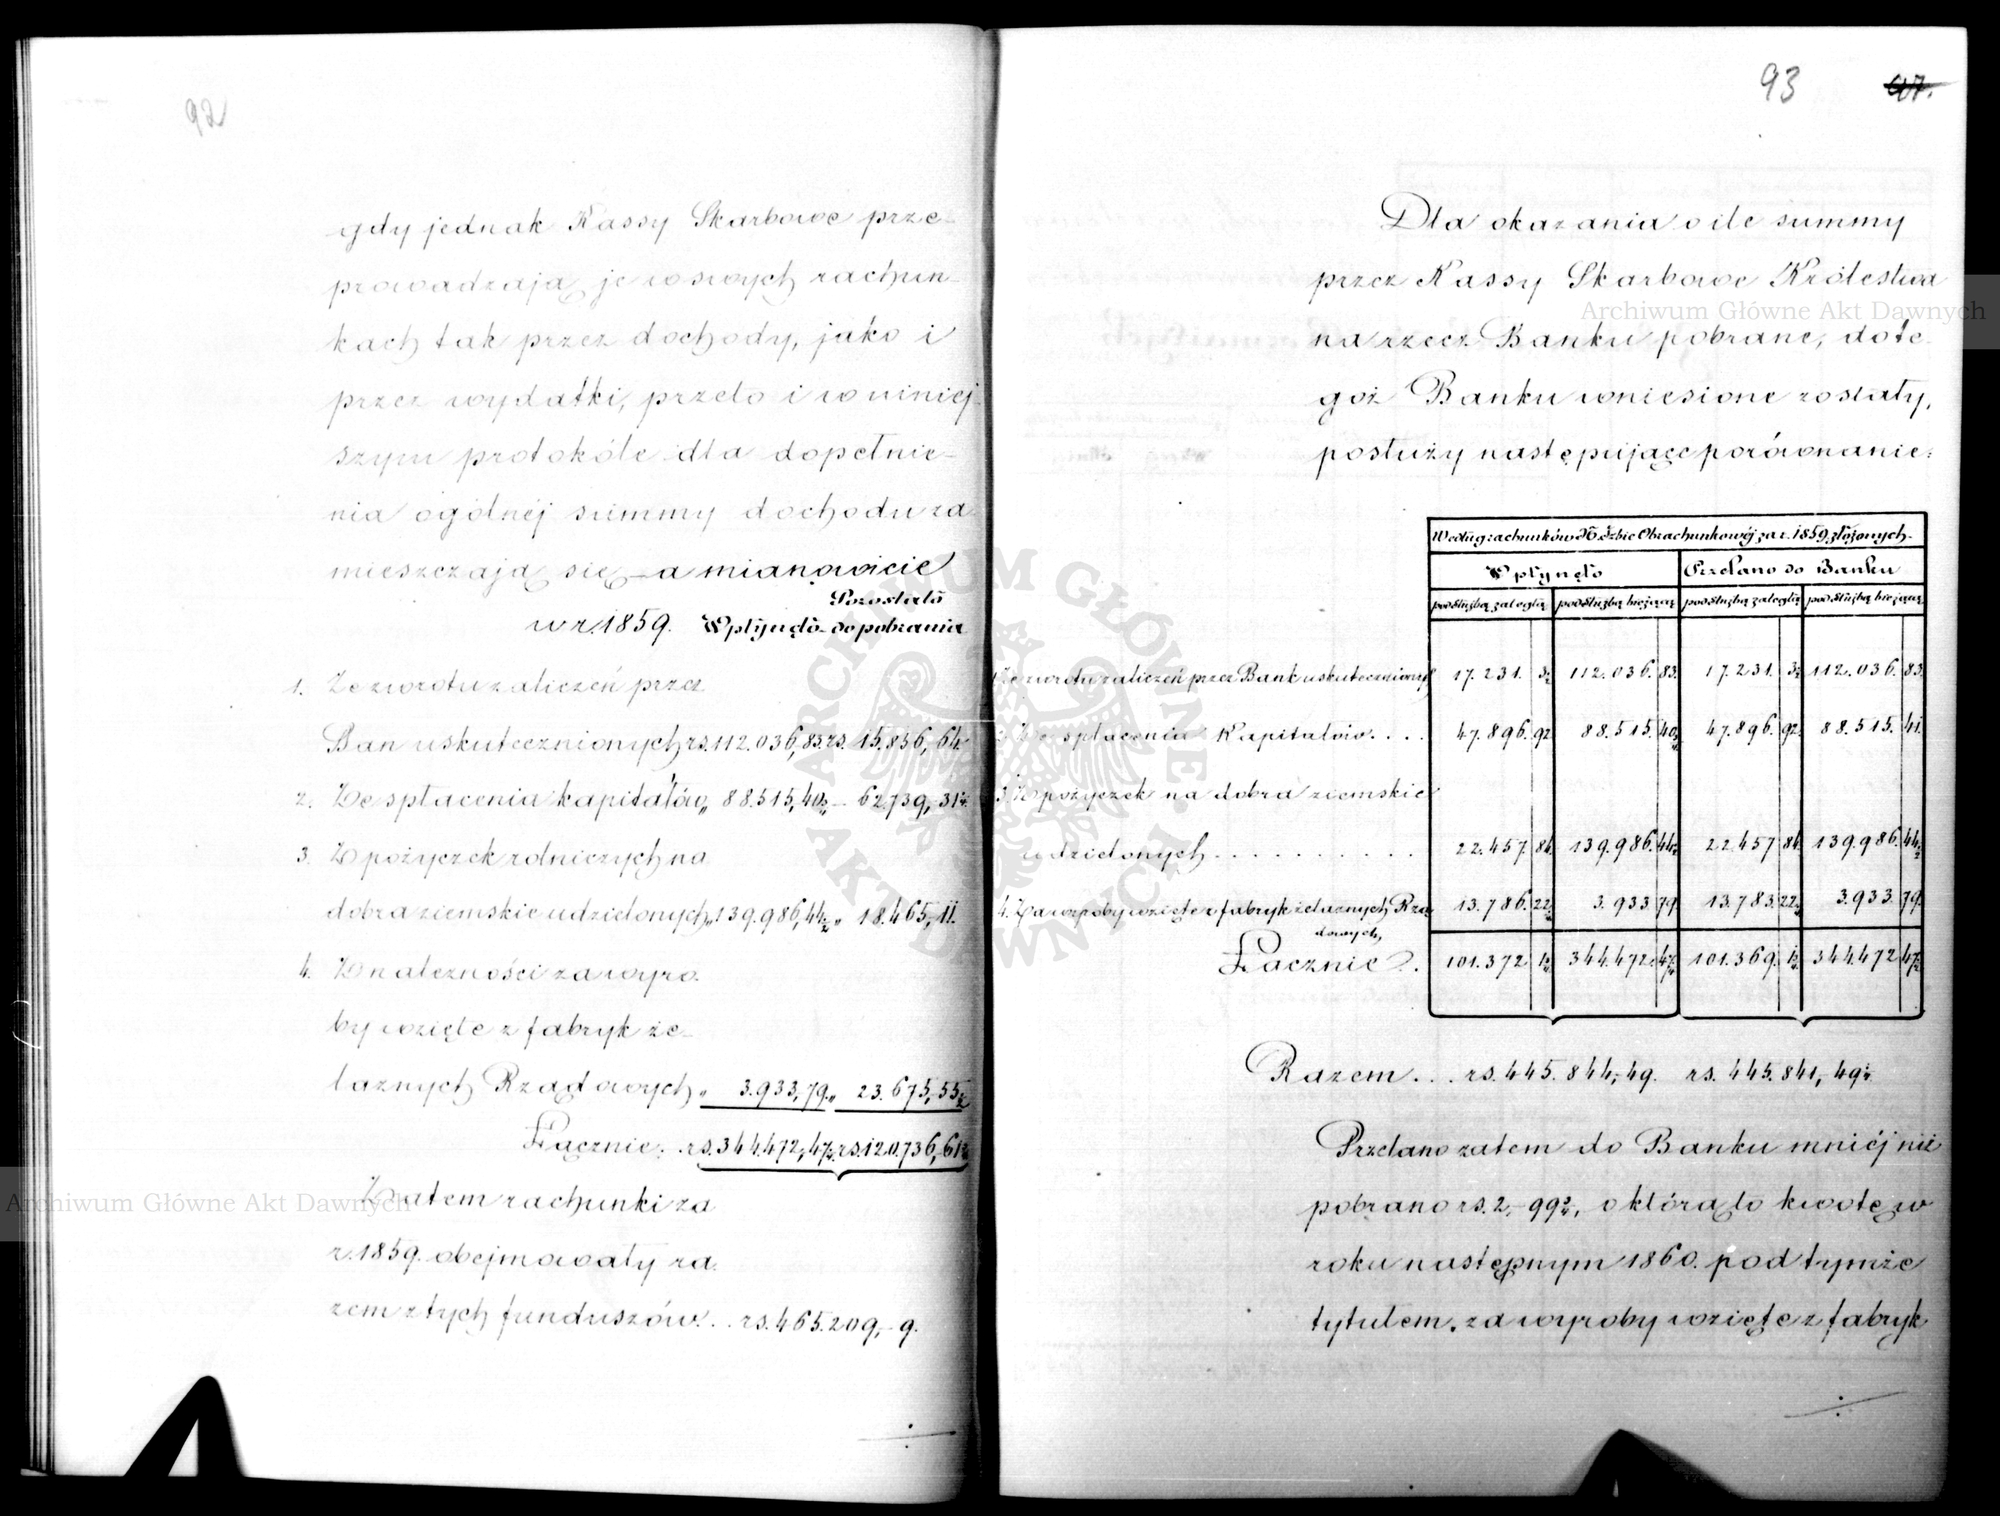 92
gdy jednak Kassy Skarbowe prze-
prowadzają je w swych rachun-
kach tak przez dochody, jako i
przez wydatki, przeto i w niniej-
szym protokóle dla dopełnie-
nia ogólnéj summy dochodu za
mieszczają się – a mianowicie
Pozostało
w r. 1859. Wpłynęło do pobrania
1. Ze zwrotu zaliczeń przez
Ban uskutecznionych rs. 112.036,83. rs. 15.856,64
2. Ze spłacenia kapitałów „ 88.515,40 – 62.739,31
3. Z pożyczek rolniczych na
dobra ziemskie udzielonych „ 139.986,44 „ 18.465, 11.
4. Z należności za wyro-
by wzięte z fabryk że-
laznych Rządowych „ 3.933,79. „ 23.675,55
Łącznie. rs. 344.472,47. rs. 120.736,61
Zatem rachunki za
r. 1859. obejmowały ra-
zem z tych funduszów... rs. 465.209,– 9.
93 97.
Dla okazania o ile summy
przez Kassy Skarbowe Królestwa
na rzecz Banku pobrane, do te-
goż Banku wniesione zostały,
posłuży następujące porównanie:
Według rachunków Izbie Obrachunkowéj za r. 1859 złożonych.
Wpłynęło Przelano do Banku
pod służbą zaległą pod służbą bieżącą pod służbą zaległą pod służbą bieżącą
1. Ze zwrotu zaliczeń przez Bank uskutecznionych 17.231. 3 112.036. 83. 17.231. 3 112.036. 83.
2. Ze spłacenia Kapitałów.... 47.896. 92 88.515. 40 47.896. 92. 88.515. 41.
3. Z pożyczek na dobra ziemskie
udzielonych.......... 22.457. 84. 139.986. 44 22.457 84. 139.986. 44
4. Za wyroby wzięte z fabryk żelaznych Rzą- 13.786. 22 3.933 79. 13.783. 22 3.933. 79.
dowych,
Łącznie.. 101.372 1 344.472. 47 101.369. 1 344.472 47
Razem... rs. 445.844,– 49. rs. 445.841,– 49
Przelano zatem do Banku mniéj niż
pobrano rs. 2,– 99¾, o którą to kwotę w
roku następnym 1860. pod tymże
tytułem, za wyroby wzięte z fabryk
Archiwum Główne Akt Dawnych
Archiwum Główne Akt Dawnych
ARCHIWUM GŁÓWNE AKT DAWNYCH